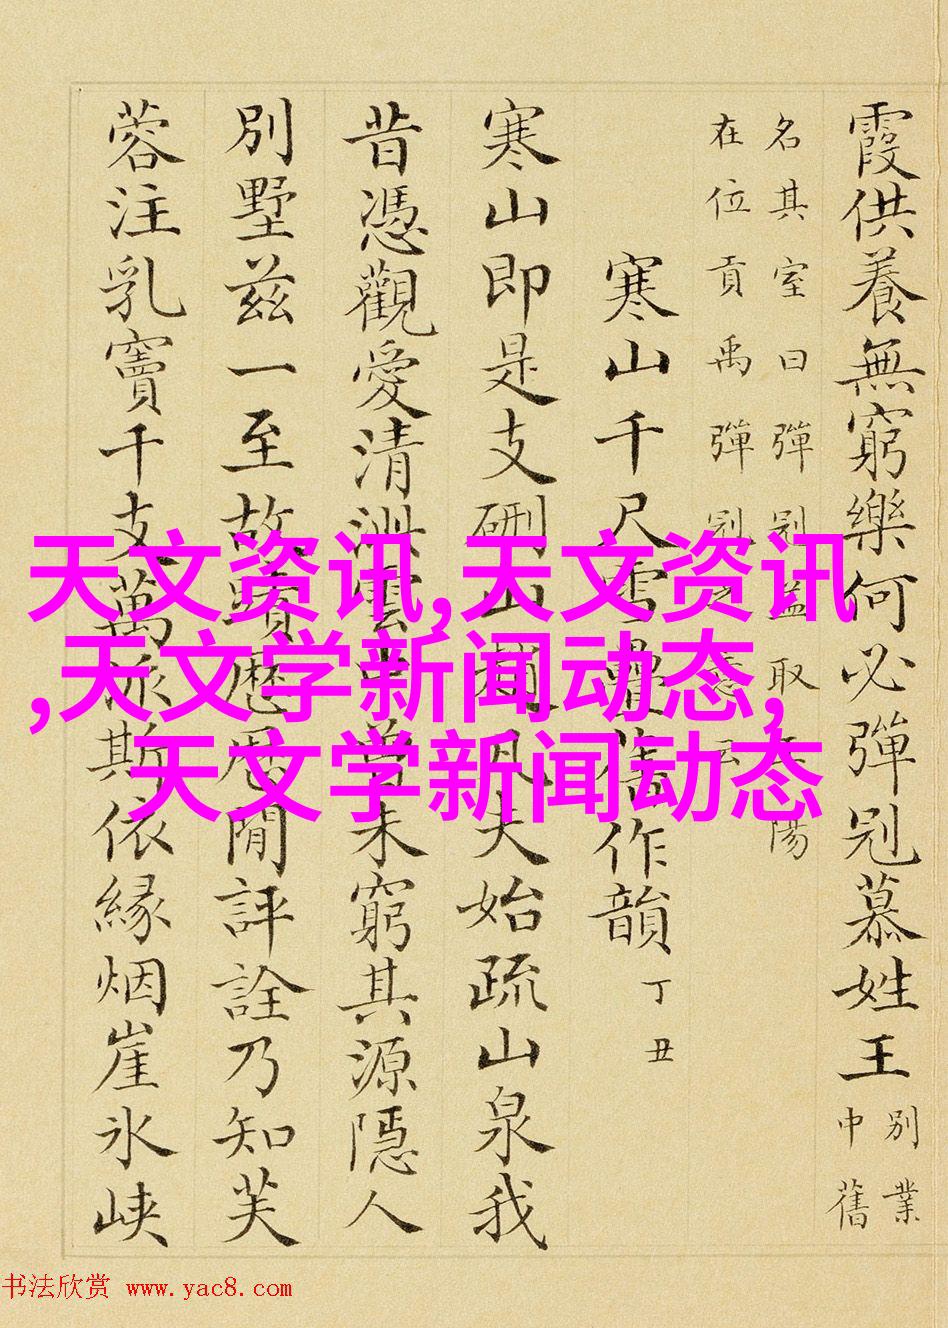 霞供養無窮樂何必彈冠慕姓王
別業
中舊
名其室曰彈冠蓋取陽
在位貢禹彈冠之意云
寒山千尺雪疊舊作韻
丁丑
寒山即是支硎山趙凡夫始疏山泉我
昔憑觀愛清雲中曾未窮其源隱人
別墅兹一至故蹟歷歷閒評詮乃知芙
蓉注乳竇千支萬派斯依緣烟崖氷峽
天文资讯,天文资讯
,天文学新闻动态,
天文学新闻动态
书法欣赏 www.yac8.com